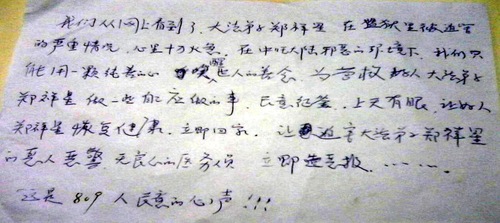 我们从网上看到了，大法弟子郑祥星 在监狱里被迫害
的严重情况，心里十分火急，在中大陆邪恶的环境下，我们只
能用一颗纯善的心 唤醒人的善念 为营救好人大法弟子
郑祥星 做一些自己应做的事，民意征签，上天有眼，让好人
郑祥星恢复健康，立即回家，让迫害大法弟子郑祥星
的恶人恶警，无良心的医务人员 立即遭恶报，……
这是 809 人民意的心声!!!